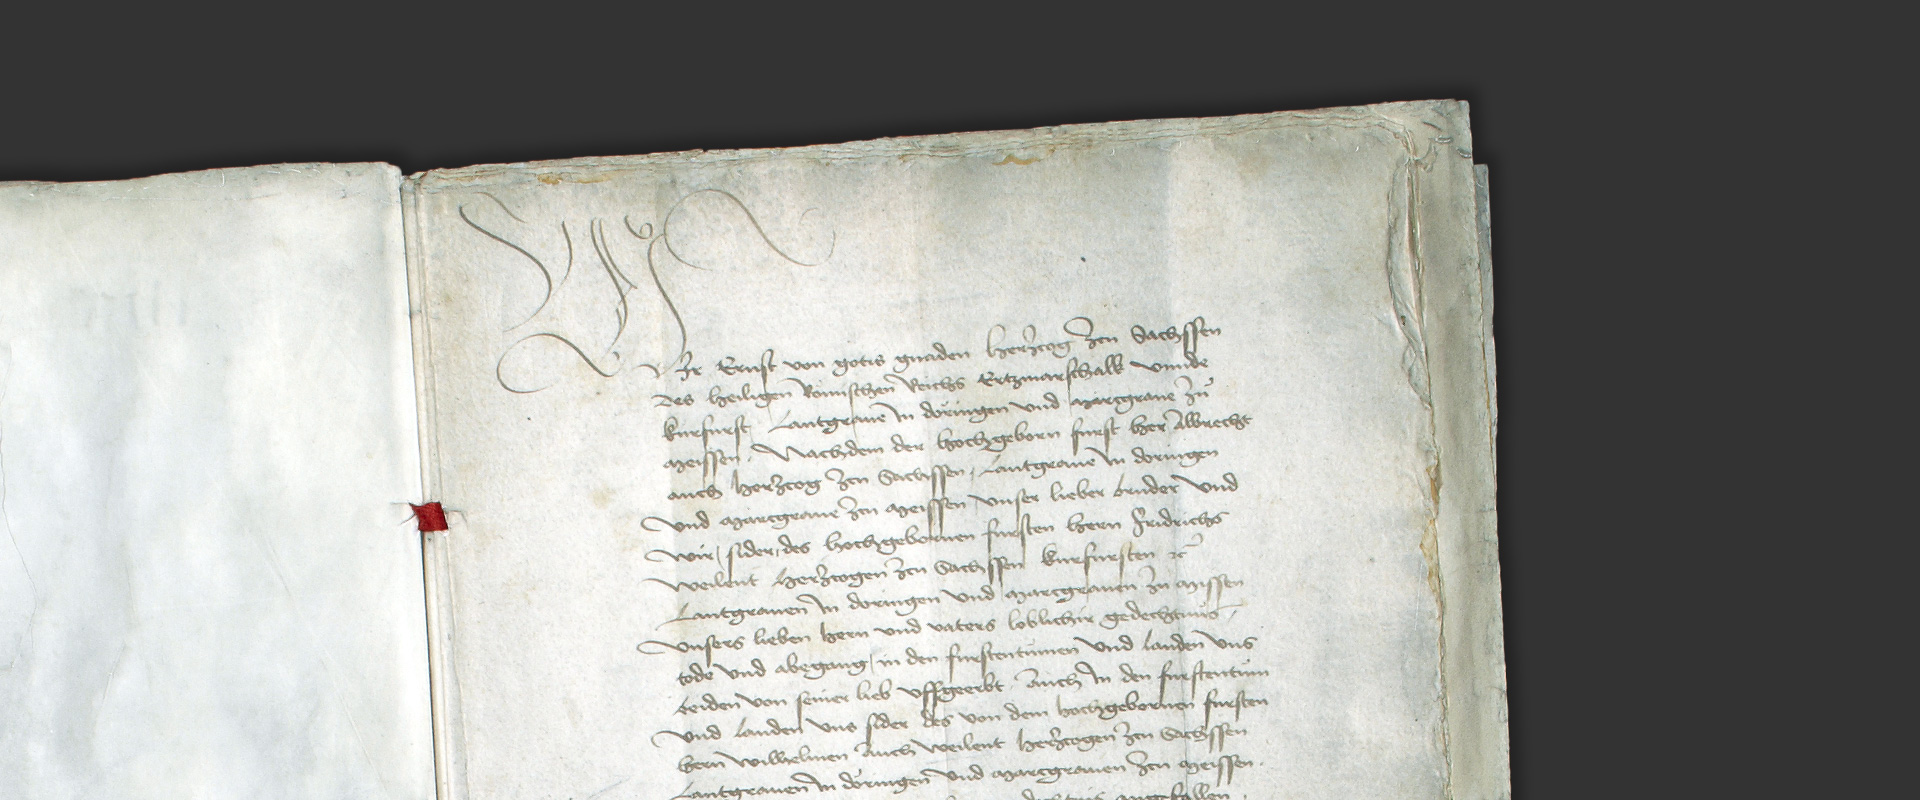 Wir Ernst von gotis gnaden hertzog zcu Sachssen
des heiligen Romisschen Reichs Ertzmarschalk vnnde
kurfurst, Lantgraue In doringen vnd Marcgraue zu
Meissen. Nachdem der hochgeborn furst her Albrecht
auch hertzog zcu Sachssen, Lantgraue In doringen
vnd Marcgraue zcu Meissen vnser lieber bruder vnd
wir, sider des hochgebornnen fursten hern Fridrichs
weilent hertzogen zcu Sachssen kurfursten ꝛc
Lantgrauen In doringen vnd Marcgrauen zu Missen
vnsers lieben hern vnd vaters loblichir gedechtnis
tode vnd abegang, in den furstentumen vnd landen vns
beiden von seiner lieb vffgeerbt. Auch In den furstentum
vnd landen vns sider des von dem hochgebornen fursten
hern Wilhelmen Auch weilent hertzogen zcu Sachssen
Lantgrauen In doringen vnd Marcgrauen zcu Meissen.
angefallen.